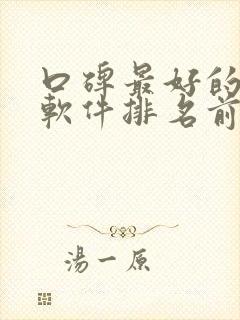 口碑最好的
軟件排名前
湯一原